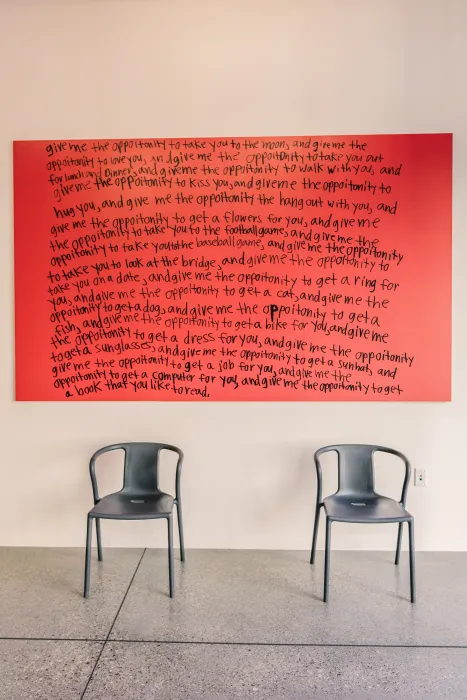 give me the oppoitonity to take you to the moon, and give me the
oppoitonity to love you, and give me the oppoitonity to take you out
for lunch and Dinner, and give me the oppoitonity to walk with you, and
give me the oppoitonity to kiss you, and give me the oppoitonity to
hug you, and give me the oppoitonity the hang out with you, and
give me the oppoitonity to get a flowers for you, and give me
the oppoitonity to take you to the football game, and give me the
oppoitonity to take you to the baseball game, and give me the oppoitonity
to take you to look at the bridge, and give me the oppoitonity to
take you on a date, and give me the oppoitonity to get a ring for
you, and give me the oppoitonity to get a cat, and give me the
oppoitonity to get a dog, and give me the oppoitonity to get a
fish, and give me the oppoitonity to get a bike for you, and give me
the oppoitonity to get a dress for you, and give me the oppoitonity
to get a sunglasses, and give me the oppoitonity to get a sunhat, and
give me the oppoitonity to get a job for you, and give me the
oppoitonity to get a computer for you, and give me the oppoitonity to get
a book that you like to read.